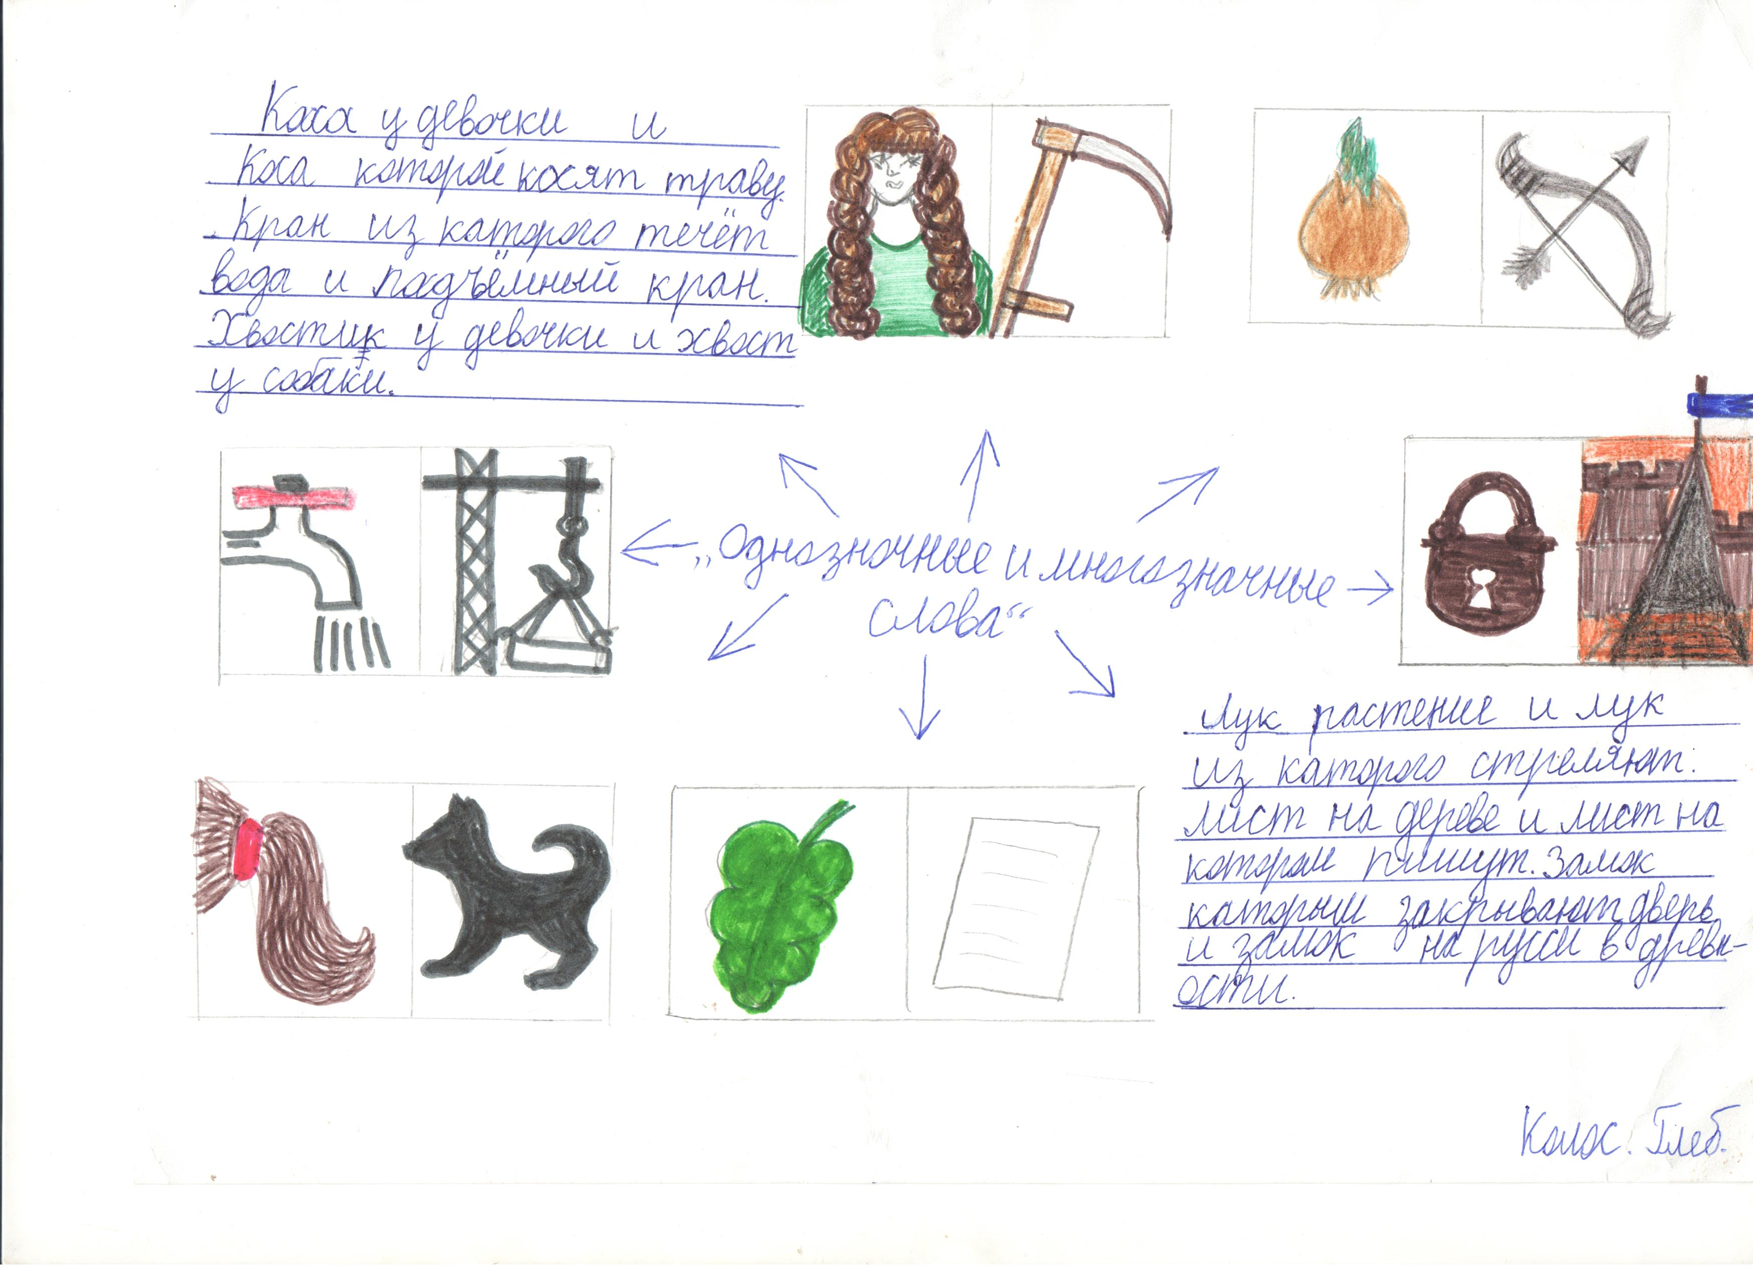 Каса у девочки и
Коса которой косят траву.
Кран из каторого течёт
вода и подъёмный кран.
Хвостик у девочки и хвост
у собаки.
„Однозночные и многозначные
слова“
Лук растение и лук
из каторого стреляют.
лист на дереве и лист на
котором пишут. Замок
которым закрывают дверь
и замок на русси в древн-
ости.
Колос. Глеб.